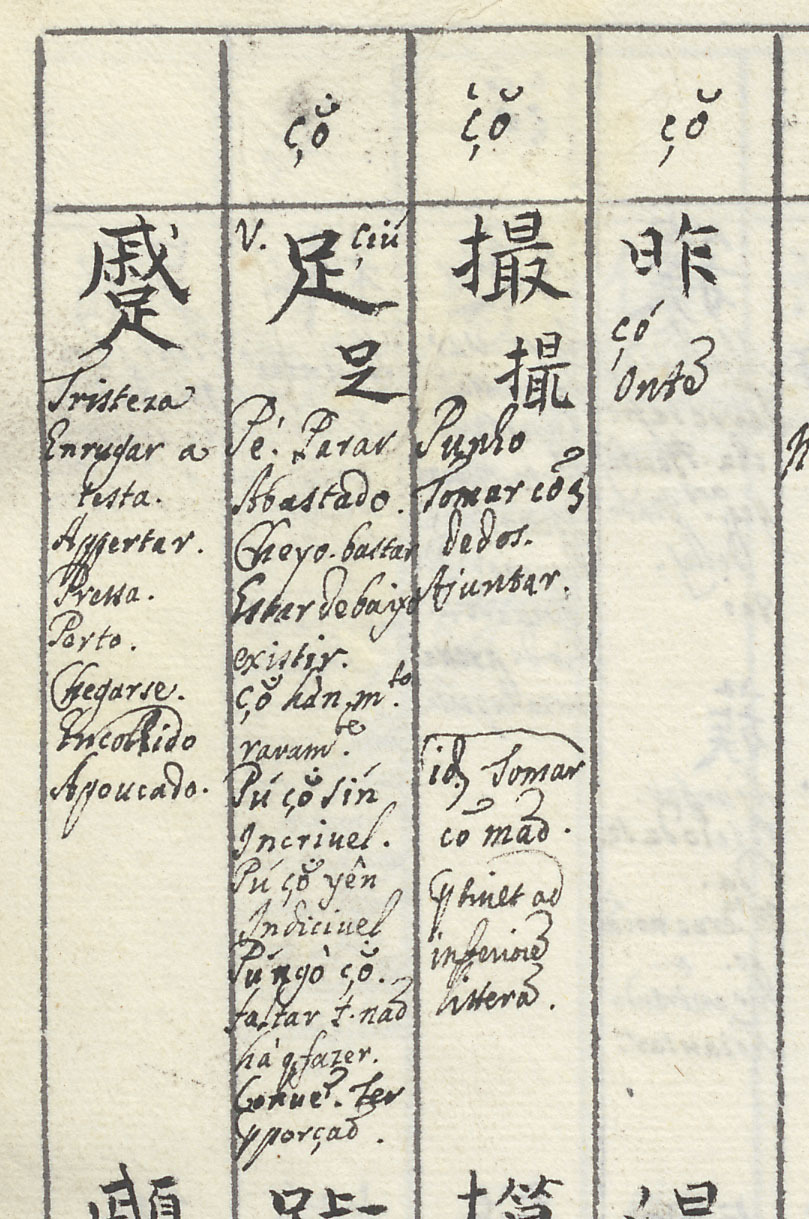 çŏ
çŏ
çŏ
蹙
Tristeza
Enrugar a
testa.
Appertar.
Pressa.
Perto.
Chegarse.
Encolhido
Apoucado.
V. 足 çiú
足
Pé. Parar
Abastado.
Cheyo. bastar
Estar debaixo
existir.
çŏ hàn, m.to
raram.te
Pú çŏ sín
Incrivel.
Pú çŏ yên
Indicivel
Pú ngò çŏ.
faltar t. naõ
há q̃ fazer.
Conuẽ. Ter
pporçaõ.
撮
撮
Punho
Tomar cõ 3
dedos.
Ajuntar.
id; Tomar
cõ maõ.
ptinet ad
inferiorẽ
litterã.
昨
çó
Ontẽ